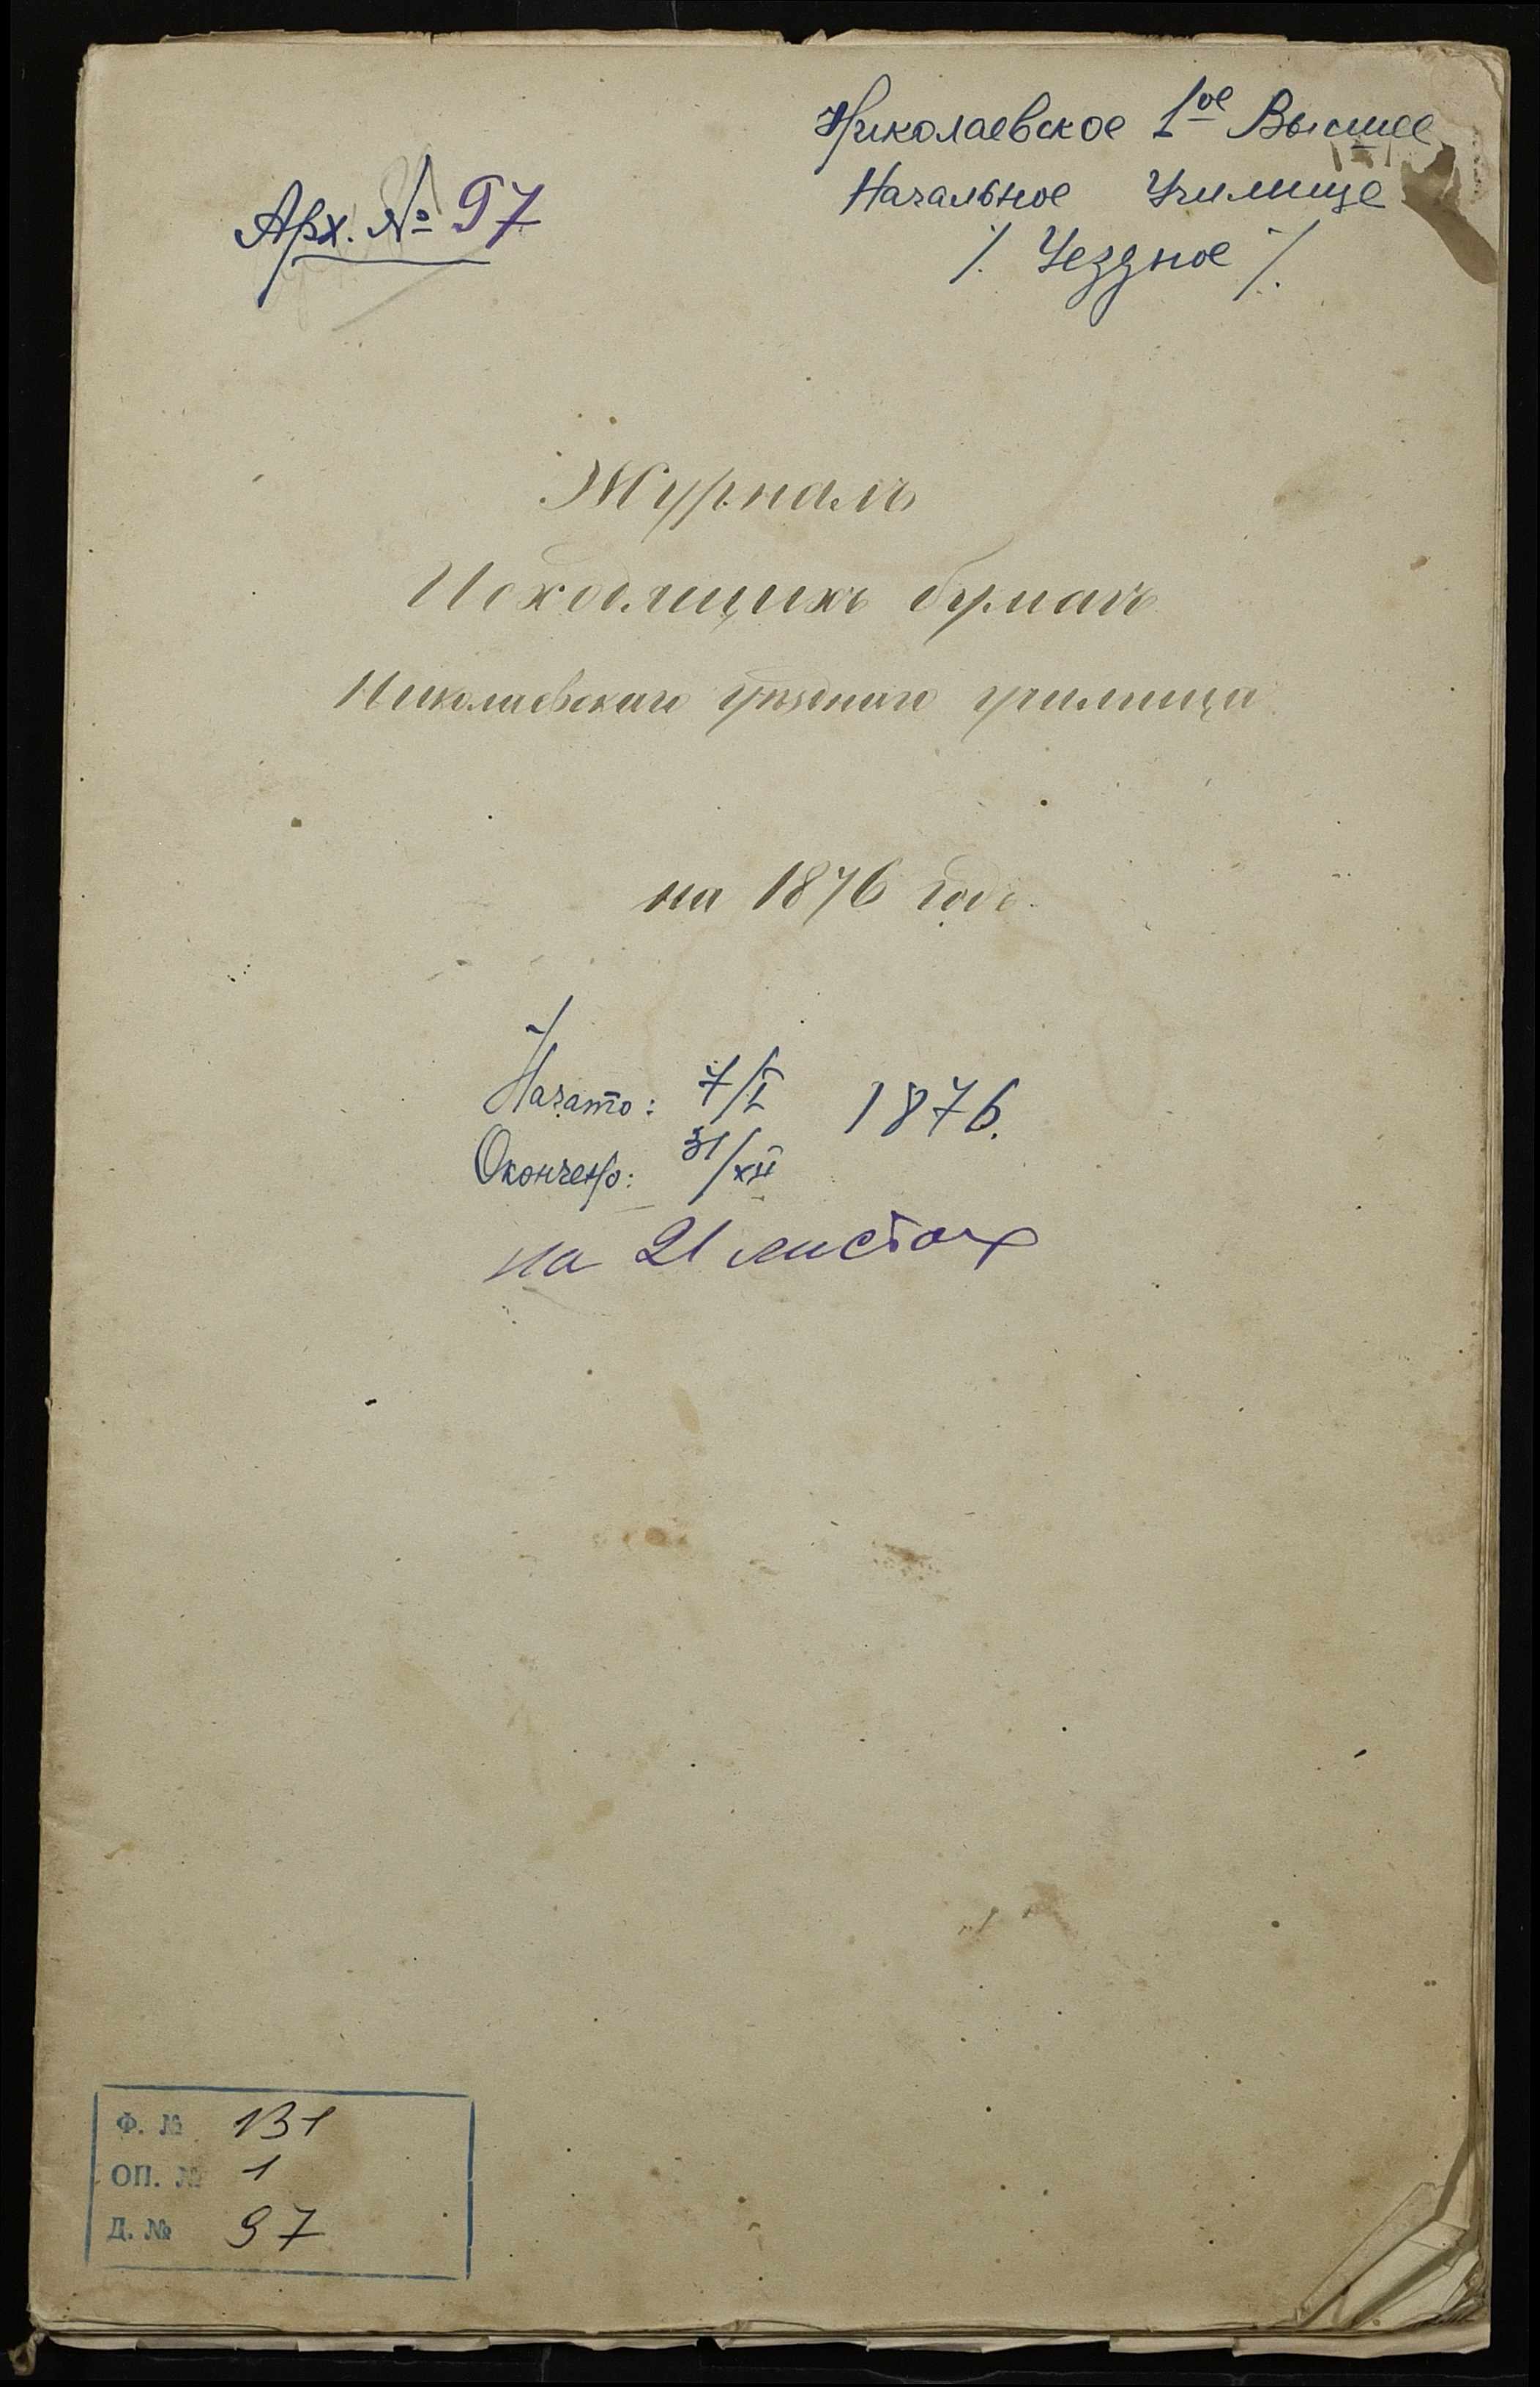 Николаевское 1ое Высшее
Начальное Училище
/. Уездное /.
Арх. № 97
Журналъ
Исходящихъ бумагъ
Николаевскаго уѣзднаго училища
на 1876 годъ.
Начато: 7/I 1876.
Окончено: 31/XII
на 21 листах
Ф. № 131
ОП. № 1
Д. № 97